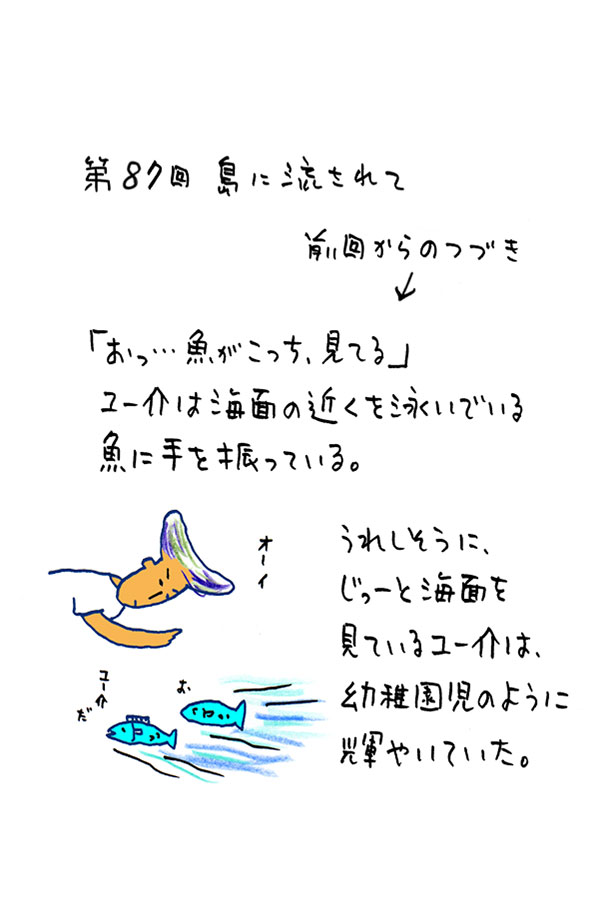 第87回 島に流されて
前回からのつづき
↓
「おっ…魚がこっち、見てる」
ユー介は海面の近くを泳いでいる
魚に手を振っている。
オーイ
うれしそうに、
じっーと海面を
見ているユー介は、
幼稚園児のように
輝やいていた。
ユー介
だ
よ